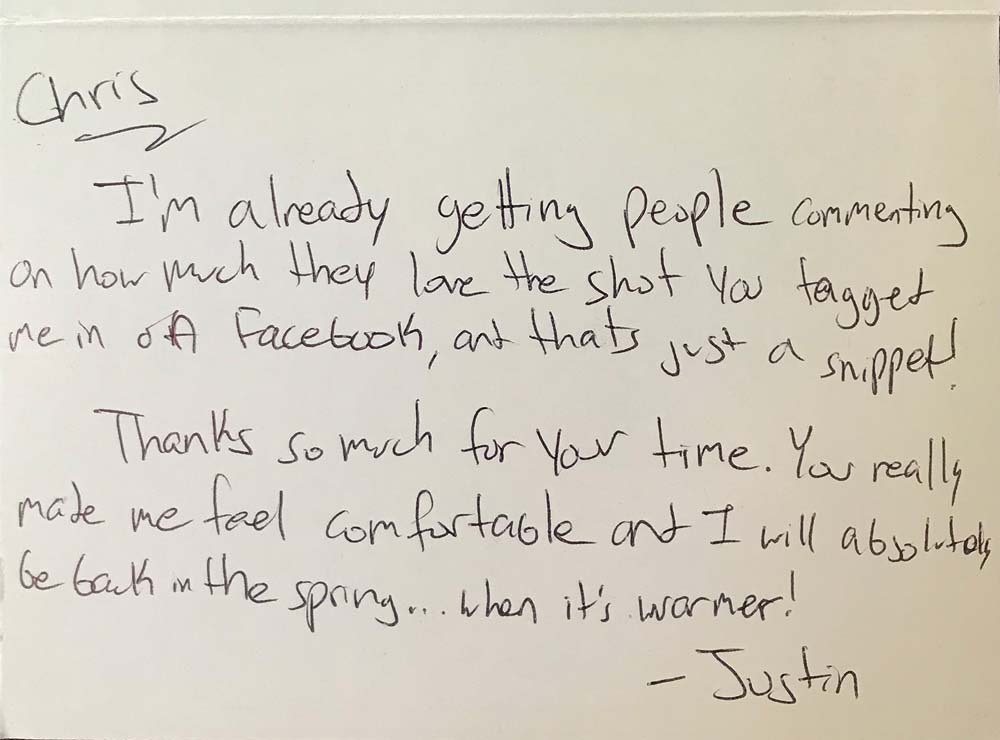 Chris
I'm already getting people commenting
on how much they love the shot you tagged
me in on Facebook, and thats just a snippet!
Thanks so much for your time. You really
made me feel comfortable and I will absolutely
be back in the spring... when it's warmer!
- Justin